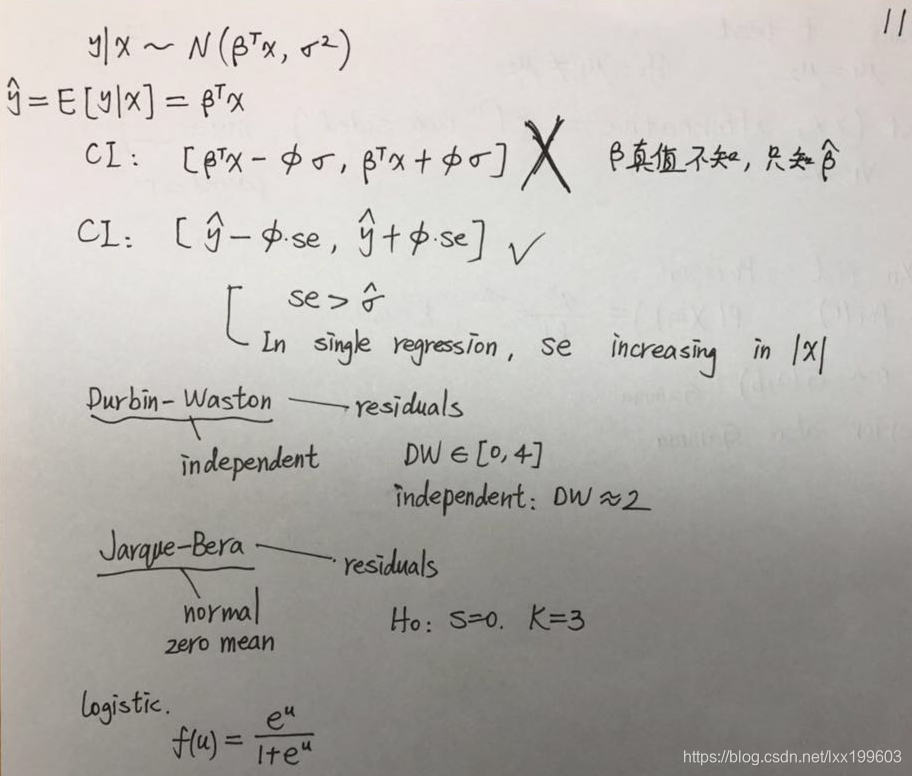 11
y|x ~ N(βᵀx, σ²)
ŷ = E[y|x] = βᵀx
CI: [βᵀx - φσ, βᵀx + φσ] X β真值不知, 只知β̂
CI: [ŷ - φ·se, ŷ + φ·se] ✓
se > σ̂
In single regression, se increasing in |x|
Durbin-Waston — residuals
independent DW ∈ [0, 4]
independent: DW ≈ 2
Jarque-Bera — residuals
normal
zero mean
H₀: S=0. K=3
logistic.
f(u) = eᵘ / 1+eᵘ
https://blog.csdn.net/lxx199603